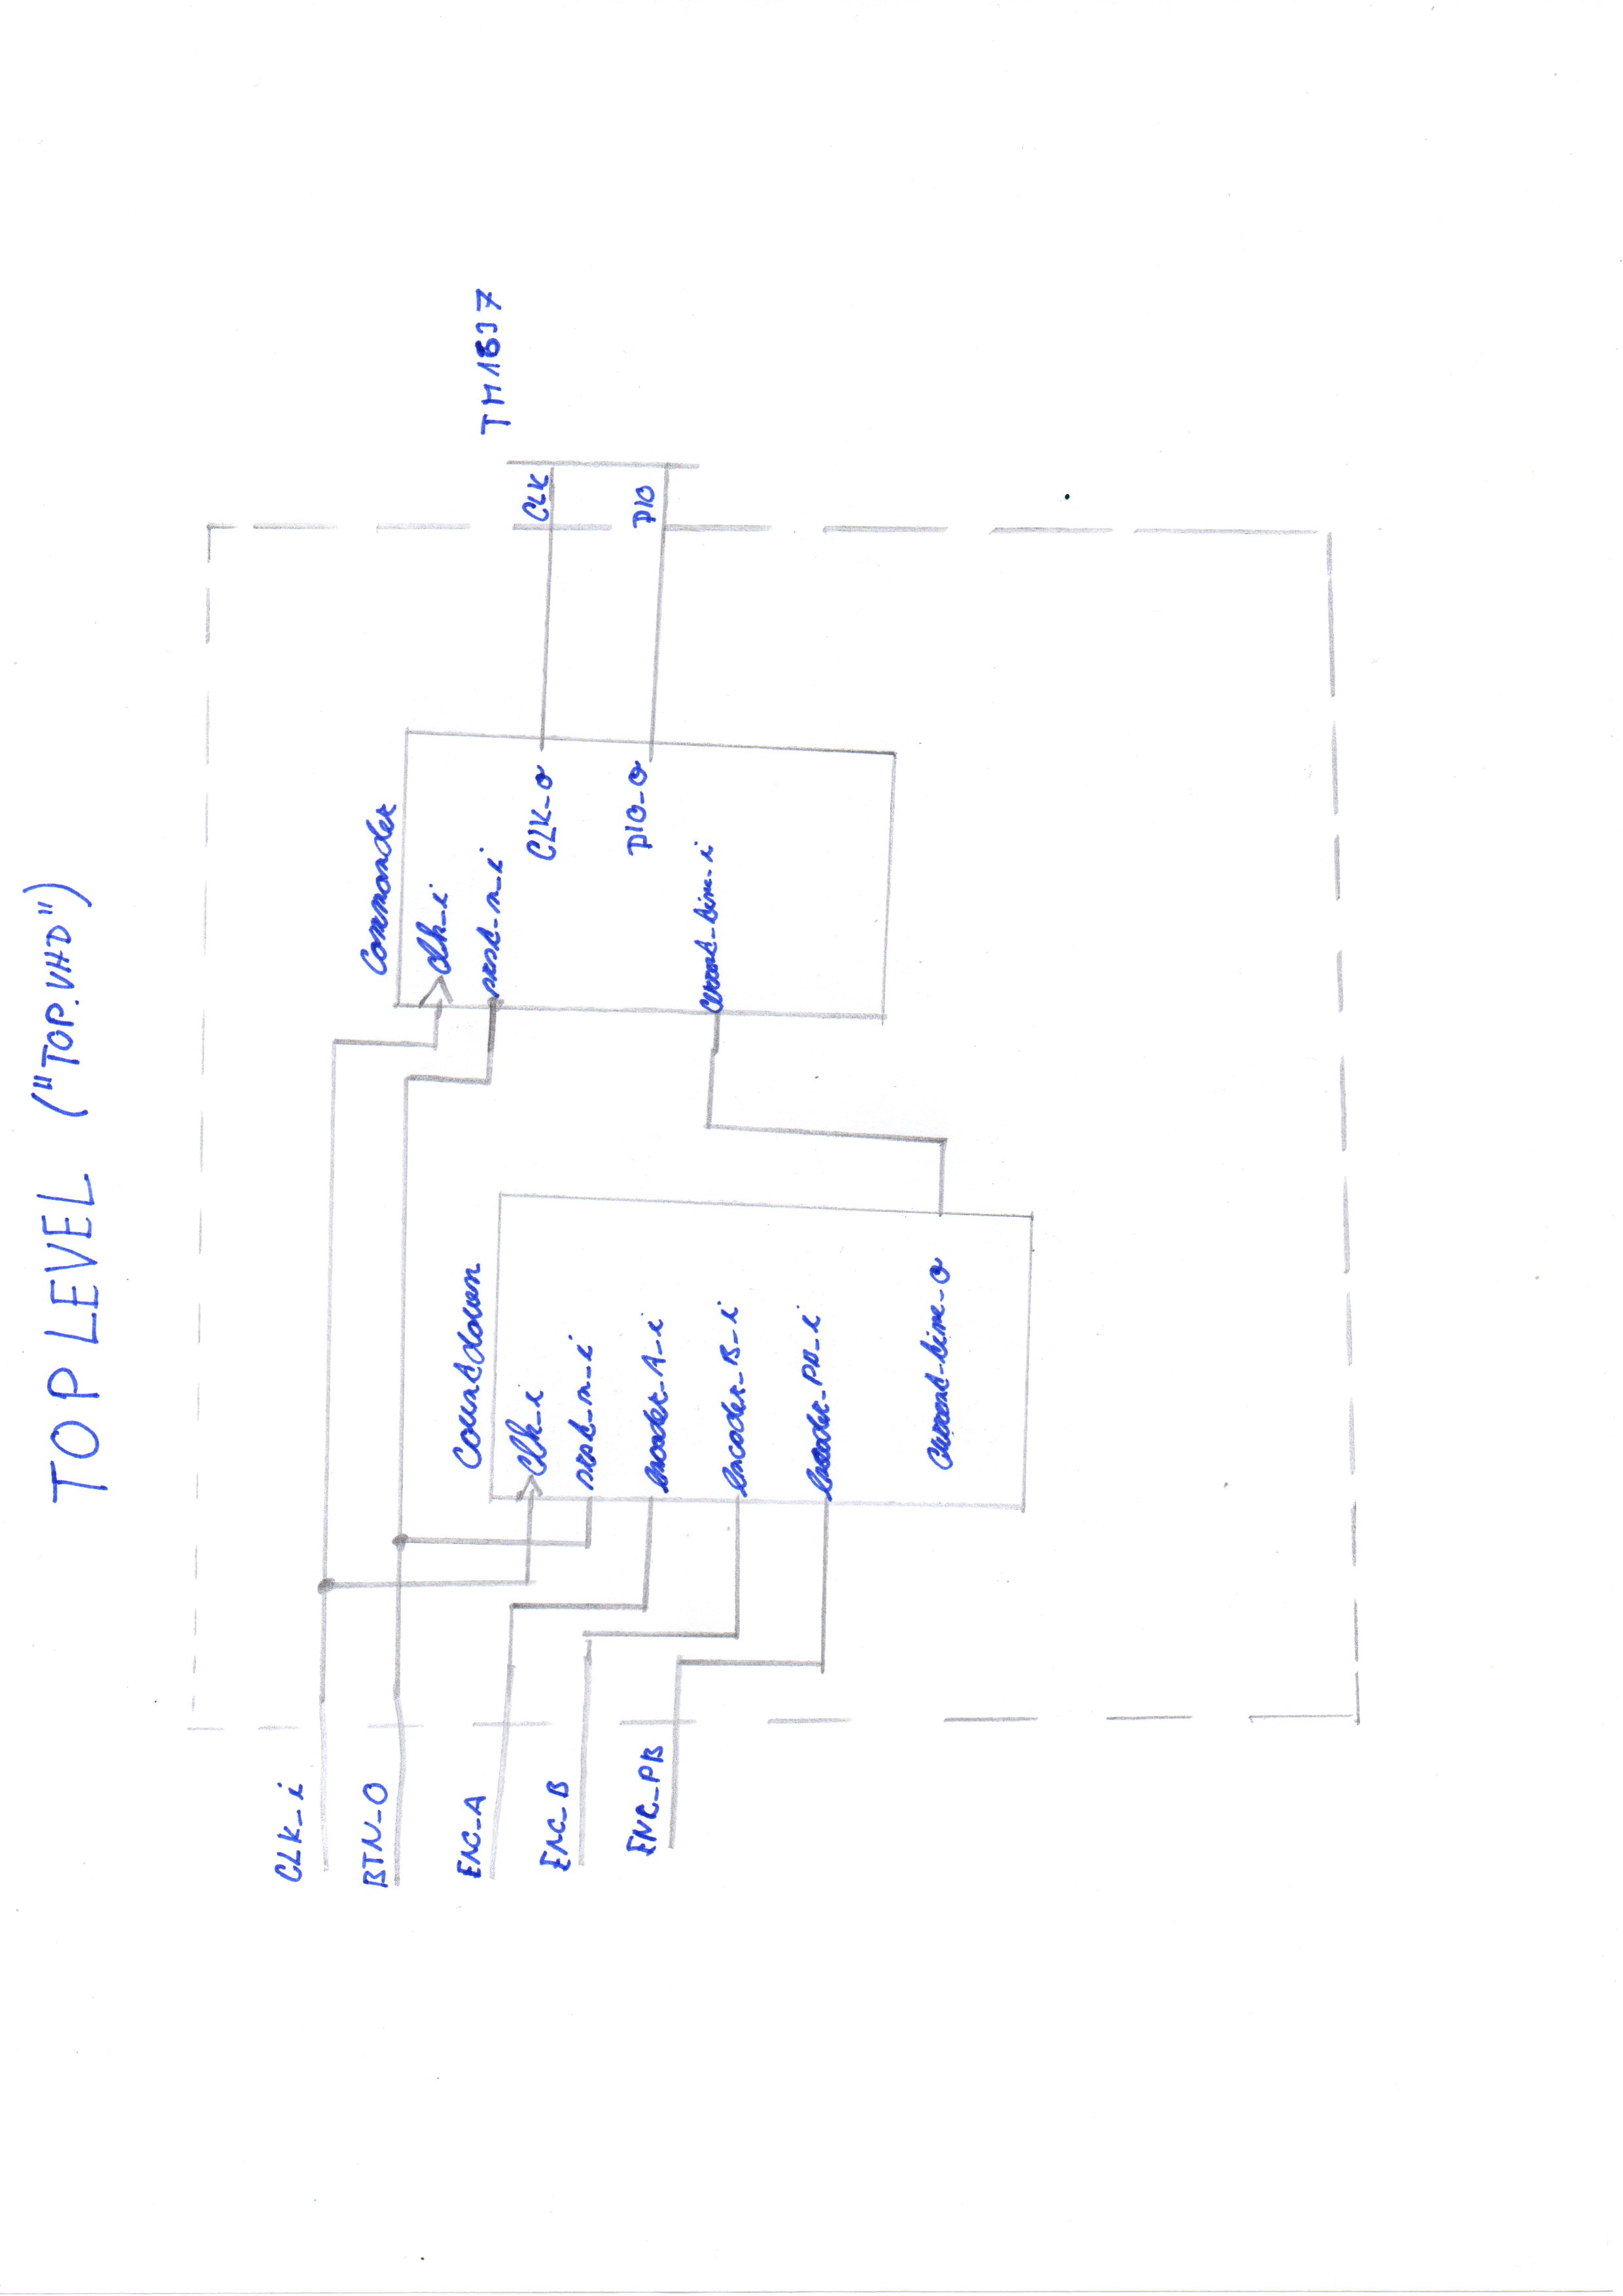 TOP LEVEL ("TOP.VHD")
CLK_i
BTN_0
ENC_A
ENC_B
ENC_PB
Countdown
clk_i
srst_n_i
encoder_A_i
encoder_B_i
encoder_PB_i
current_time_o
Commander
clk_i
srst_n_i
CLK_o
DIO_o
current_time_i
TM1637
CLK
DIO